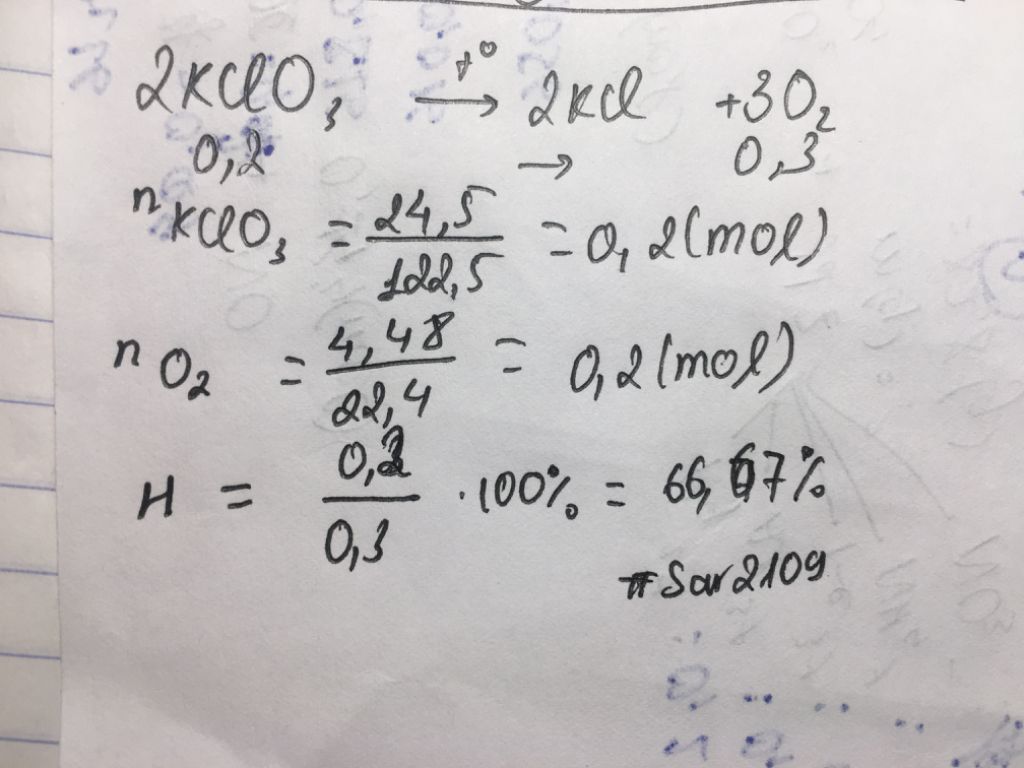 2KClO₃ —t°→ 2KCl + 3O₂
0,2 → 0,3
nKClO₃ = 24,5/122,5 = 0,2 (mol)
nO₂ = 4,48/22,4 = 0,2 (mol)
H = 0,2/0,3 · 100% = 66,67%
#Sar2109